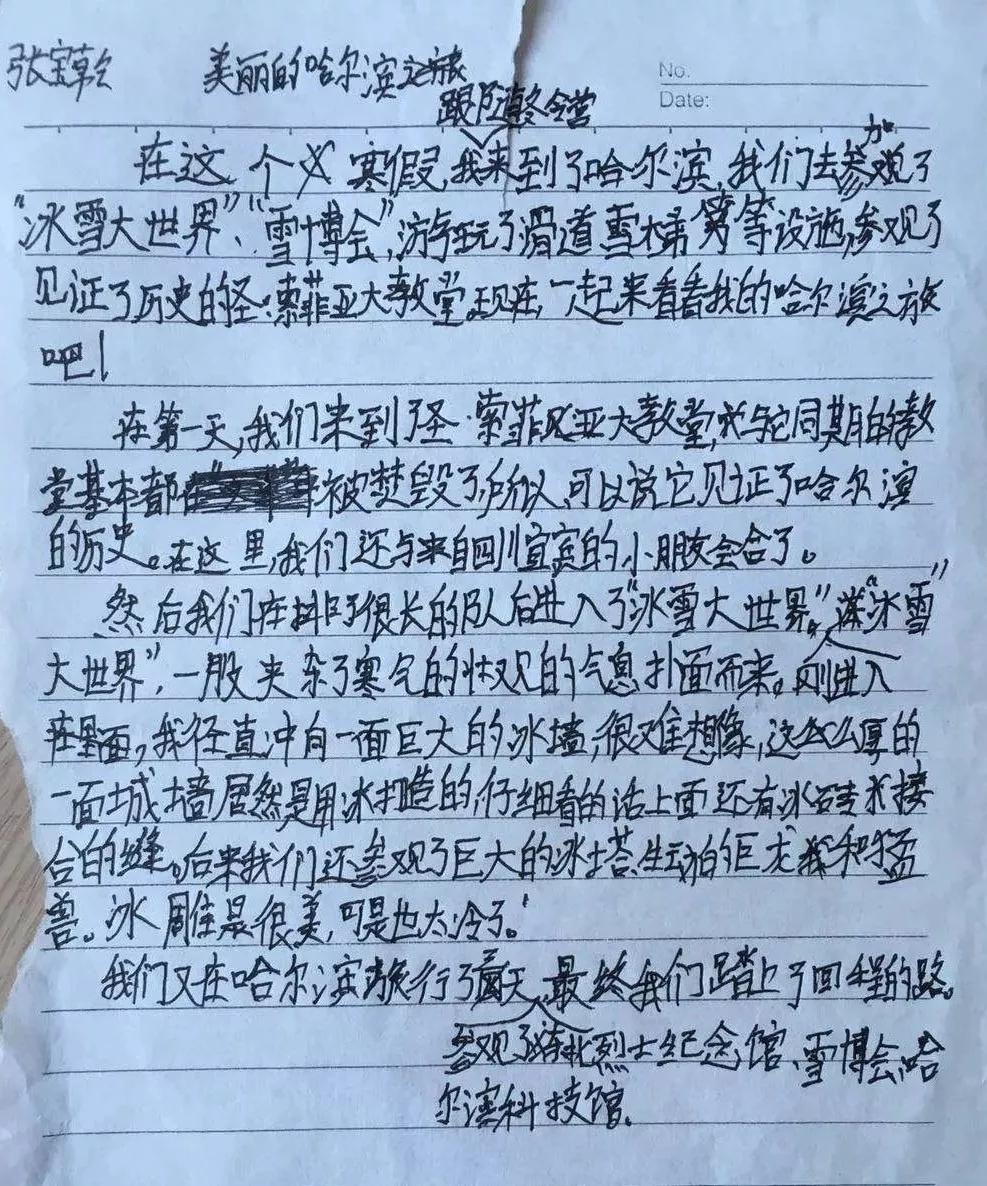 张宝乾 美丽的哈尔滨之旅
No.
Date:
跟随冬令营
加
在这个寒假,我来到了哈尔滨,我们去参观了
“冰雪大世界”、“雪博会”,游玩了滑道雪梯等设施,参观了
见证了历史的圣·索菲亚大教堂,现在,一起来看看我的哈尔滨之旅
吧!
在第一天,我们来到了圣·索菲亚大教堂,与它同期的教
堂基本都被焚毁了,所以,可以说它见证了哈尔滨
的历史。在这里,我们还与来自四川宜宾的小朋友会合了。
然后我们在排了很长的队后进入了“冰雪大世界”,“冰雪
大世界”,一股夹杂了寒气的壮观的气息扑面而来。刚进入
里面,我径直冲向一面巨大的冰墙,很难想像,这么厚的
一面城墙居然是用冰打造的,仔细看的话上面还有冰砖接
合的缝。后来我们还参观了巨大的冰塔,生动的巨龙和猛
兽。冰雕是很美,可是也太冷了!
我们又在哈尔滨旅行了几天,最终我们踏上了回程的路。
参观了东北烈士纪念馆、雪博会、哈
尔滨科技馆。